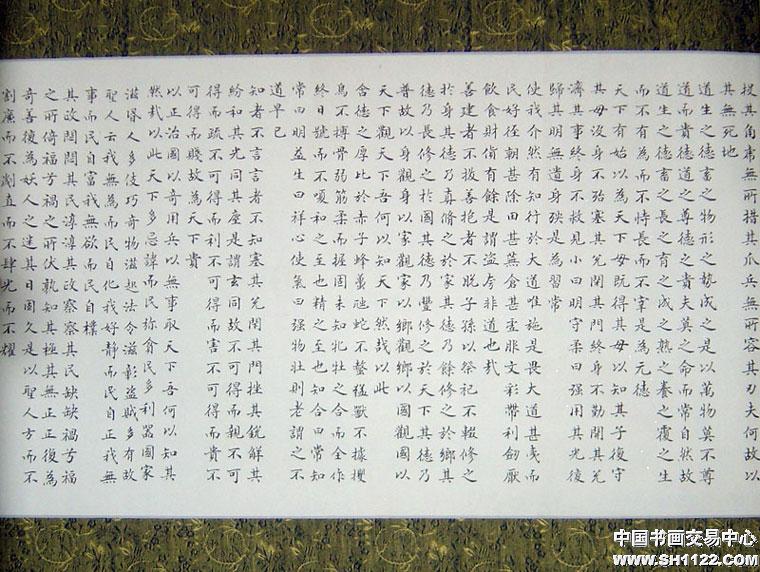 投其角席無所措其爪兵無所容其刃夫何故以
其無死地
道生之德畜之物形之勢成之是以萬物莫不尊
道而貴德道之尊德之貴夫莫之命而常自然故
道生之德畜之長之育之成之熟之養之覆之生
而不有為而不恃長而不宰是為元德
天下有始以為天下母既得其母以知其子復守
其母沒身不殆塞其兌閉其門終身不勤開其兌
濟其事終身不救見小曰明守柔曰强用其光復
歸其明無遺身殃是為習常
使我介然有知行於大道唯施是畏大道甚夷而
民好徑朝甚除田甚蕪倉甚虛服文彩帶利劒厭
飲食財貨有餘是謂盜夸非道也哉
善建者不拔善抱者不脫子孫以祭祀不輟修之
於身其德乃真脩之於家其德乃餘修之於鄉其
德乃長修之於國其德乃豐修之於天下其德乃
普故以身觀身以家觀家以鄉觀鄉以國觀國以
天下觀天下吾何以知天下然哉以此
含德之厚比於赤子蜂蠆虺蛇不螫猛獸不據攫
鳥不搏骨弱筋柔而握固未知牝牡之合而全作
終日號而不嗄和之至也精之至也知合曰常知
常曰明益生曰祥心使氣曰强物壯則老謂之不
道早已
知者不言言者不知塞其兌閉其門挫其銳解其
紛和其光同其塵是謂玄同故不可得而親不可
得而疏不可得而利不可得而害不可得而貴不
可得而賤故為天下貴
以正治國以奇用兵以無事取天下吾何以知其
然哉以此天下多忌諱而民弥貧民多利器國家
滋昬人多伎巧奇物滋起法令滋彰盜賊多有故
聖人云我無為而民自化我好靜而民自正我無
事而民自富我無欲而民自樸
其政悶悶其民淳淳其政察察其民缺缺禍兮福
之所倚福兮禍之所伏孰知其極其無正正復為
奇善復為妖人之迷其日固久是以聖人方而不
割廉而不劌直而不肆光而不耀
中国书画交易中心
www.SH1122.com